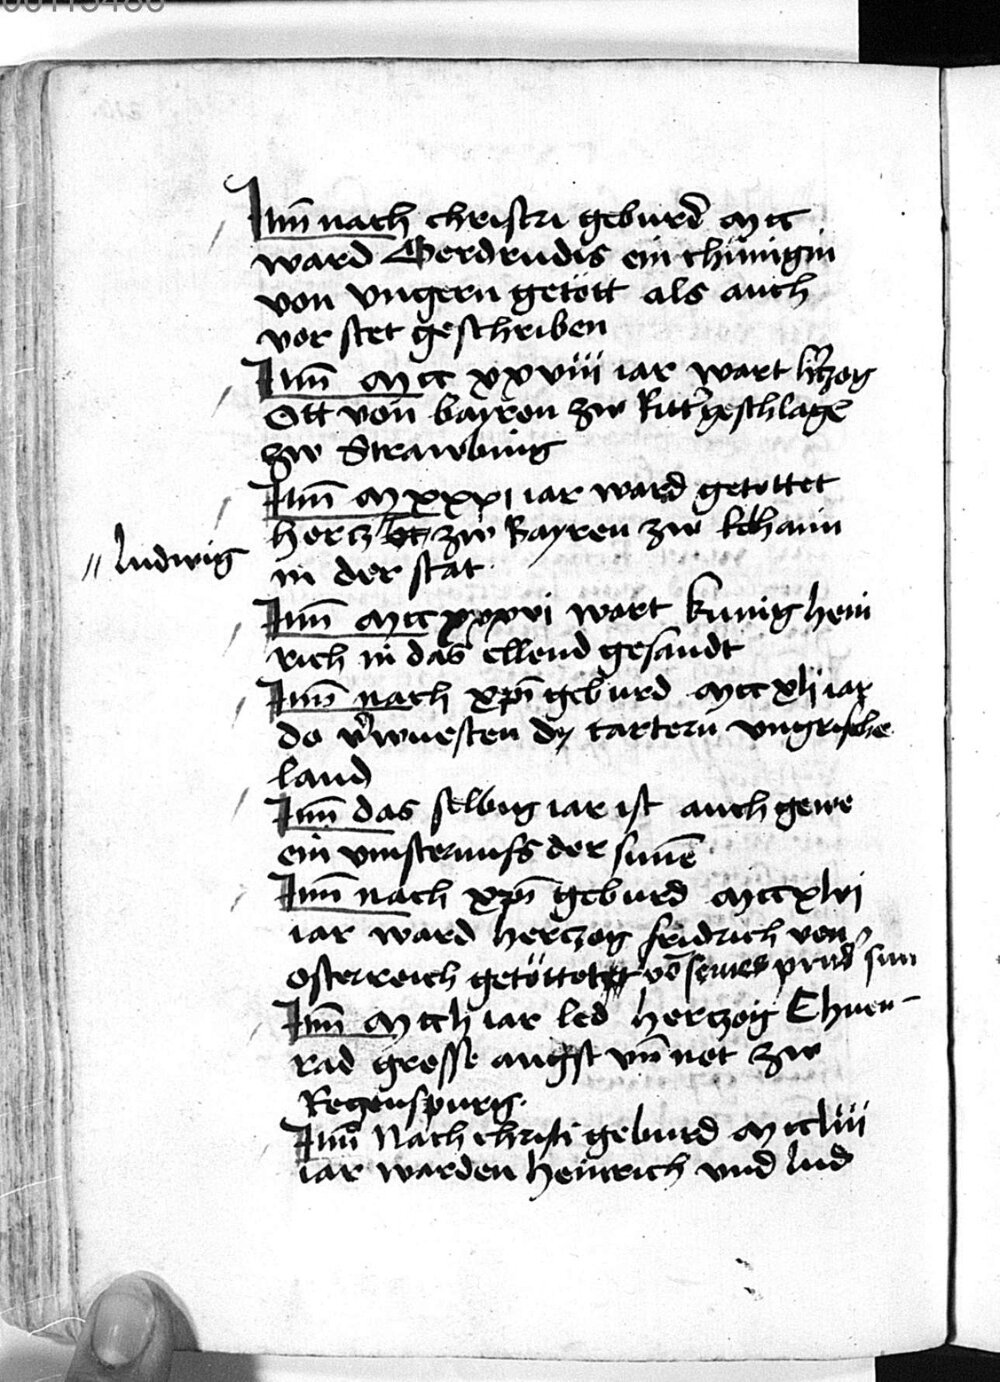 Itm̄ nach christi geburd Mcc
ward Gerdrudis ein chunigin
von vngern getött als auch
vor stet geschriben
Itm̄ Mcc xxviii iar wart h'czog
Ott von bayron zw Ritt' geschlagē
zw Strawbing
Itm̄ Mxxxi iar ward getottet
hercz zw Bayren zw kelhaim
// ludwig
in der stat
Itm̄ Mccxxxvi wart kunig hein
rich in das ellend gesandt
Itm̄ nach xp̄i geburd Mccxlii iar
do v'wuesten dy tartern vngrische
land
Itm̄ das selbig iar ist auch gewe
ein vinsternuss der sunē
Itm̄ nach xp̄i geburd Mccxlvi
iar ward herczog fridrich von
osterreich getöttet vō seines prud' sun
Itm̄ Mccli iar led herczog Chuen-
rad grosse angst vn̄ not zw
Regenspurg.
Itm̄ Nach christi geburd Mccliii
iar warden heinrich vnd lud